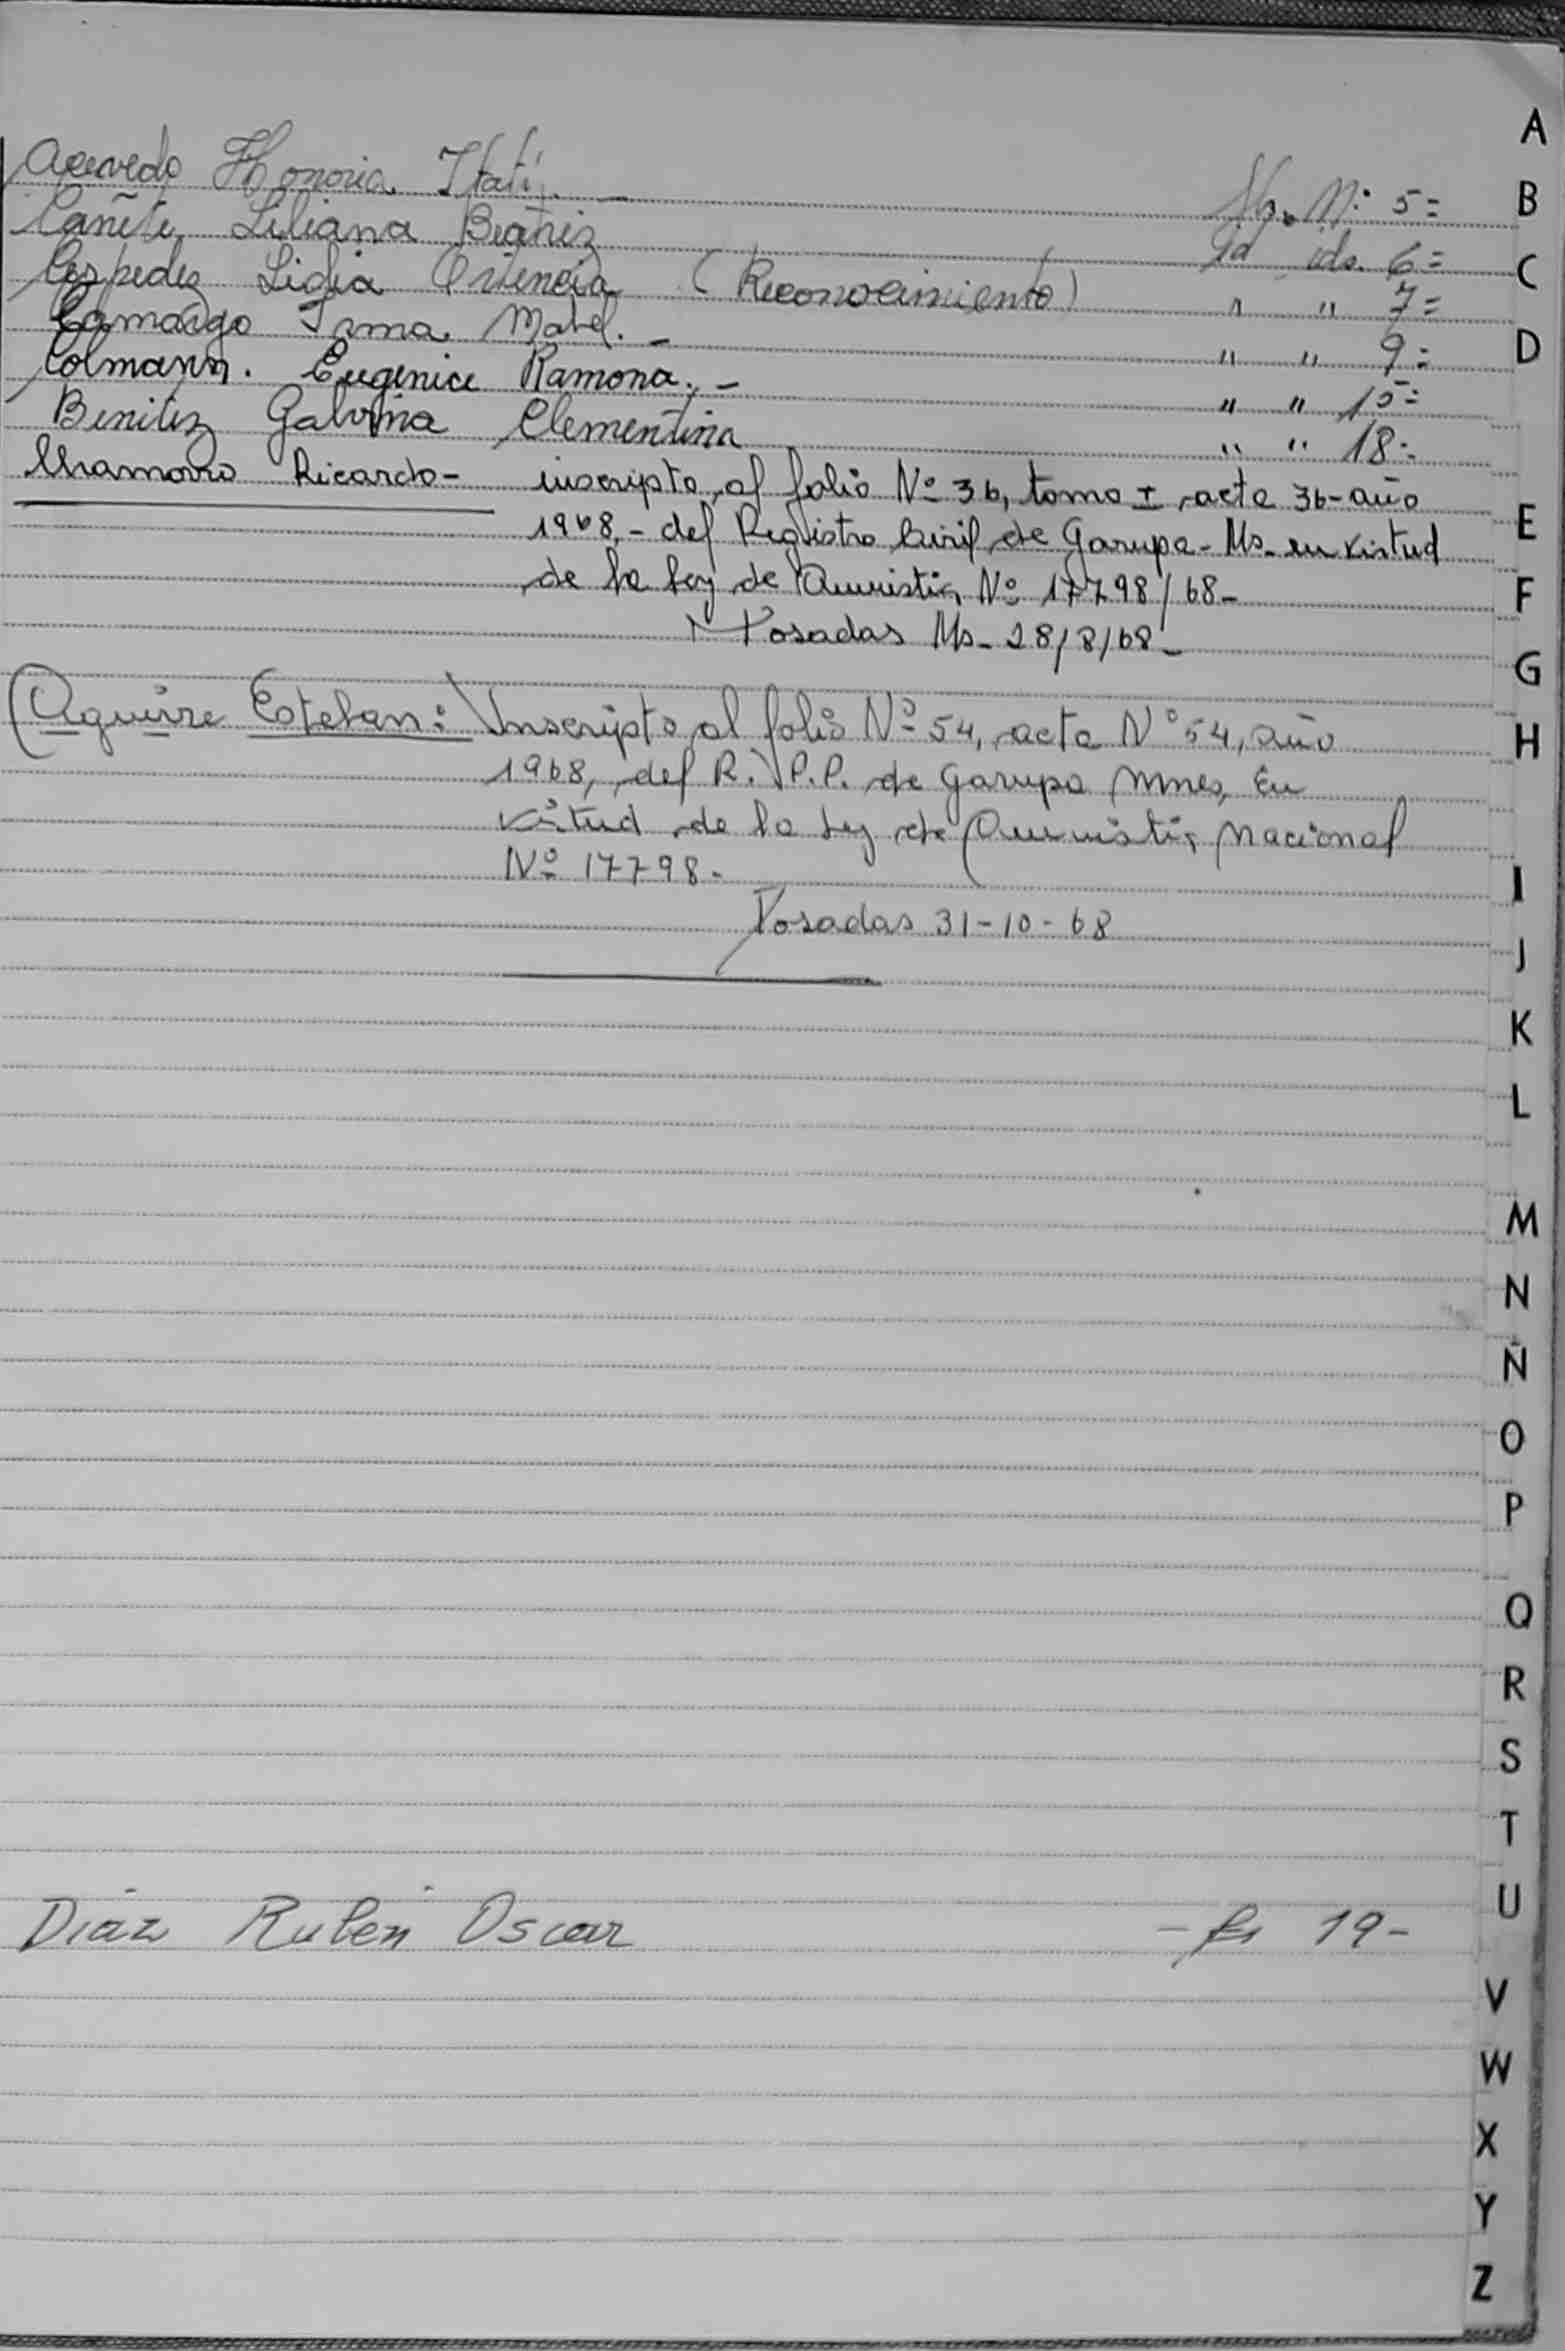 Acevedo Honoria Itatí. — Nº 5=
Cañete Liliana Beatriz id ids. 6=
Cespedes Ligia Ortencia (Reconocimiento) " " 7=
Camargo Irma Mabel. — " " 9=
Colmann. Eugenia Ramona. — " " 15=
Benitez Galvina Clementina " " 18=
Chamorro Ricardo - inscripto al folio Nº 36, tomo I acta 36 - año
1968, - del Registro Civil de Garupa - Ms. en virtud
de la ley de Amnistia Nº 17798/68 -
Posadas Ms - 28/8/68 -
(Aguirre Esteban: Inscripto al folio Nº 54, acta Nº 54, año
1968, del R. P.P. de Garupa Mnes, en
virtud de la Ley de Amnistia Nacional
Nº 17798 -
Posadas 31-10-68
Diaz Rubén Oscar - fs 19 -
A
B
C
D
E
F
G
H
I
J
K
L
M
N
Ñ
O
P
Q
R
S
T
U
V
W
X
Y
Z